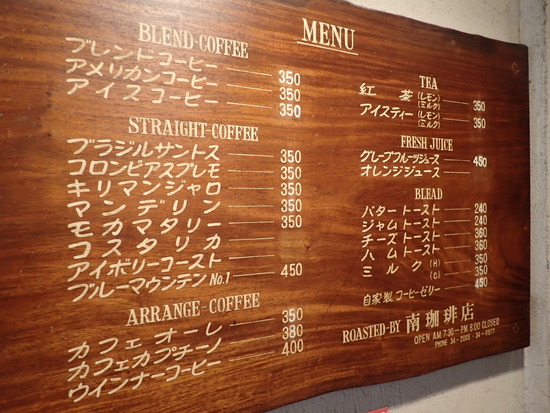 MENU
BLEND-COFFEE
ブレンドコーヒー
アメリカンコーヒー 350
アイスコーヒー 350
350
STRAIGHT-COFFEE
ブラジルサントス 350
コロンビアスプレモ 350
キリマンジャロ 350
マンデリン 350
モカマタリー 350
コスタリカ
アイボリーコースト
ブルーマウンテン No.1 450
ARRANGE-COFFEE
カフェオーレ 350
カフェカプチーノ 380
ウインナーコーヒー 400
TEA
紅茶 (レモン) (ミルク) 350
アイスティー (レモン) (ミルク) 350
FRESH JUICE
グレープフルーツジュース 450
オレンジジュース
BLEAD
バタートースト 240
ジャムトースト 240
チーズトースト 360
ハムトースト 360
ミルク (H) 350
(C) 350
自家製コーヒーゼリー 450
ROASTED-BY 南珈琲店
OPEN AM.7:30~PM.8:00 CLOSED
PHONE 34-2085・34-4977